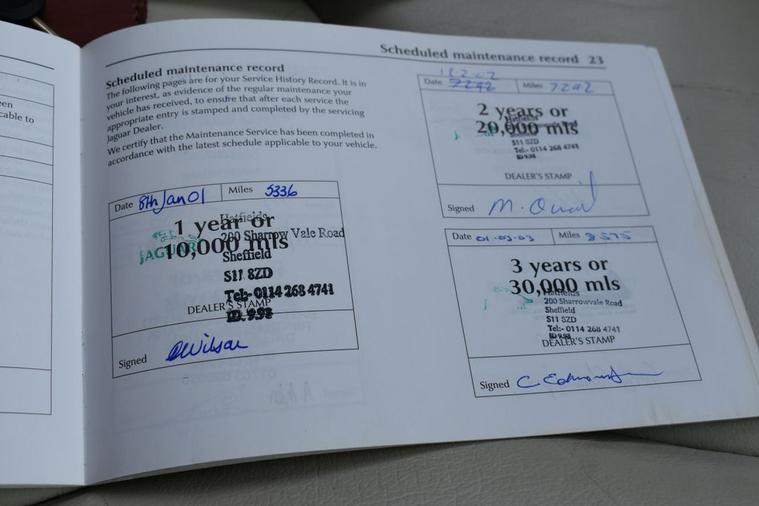 en
cable to
Scheduled maintenance record 23
Scheduled maintenance record
The following pages are for your Service History Record. It is in
your interest, as evidence of the regular maintenance your
vehicle has received, to ensure that after each service the
appropriate entry is stamped and completed by the servicing
Jaguar Dealer.
We certify that the Maintenance Service has been completed in
accordance with the latest schedule applicable to your vehicle.
Date 8th Jan 01 Miles 5336
1 year or
10,000 mls
JAGUAR
Hatfields
200 Sharrow Vale Road
Sheffield
S11 8ZD
Tel:- 0114 268 4741
DEALER'S STAMP
ID. 9.98
Signed
Date 7242 Miles 7242
2 years or
20,000 mls
S11 8ZD
Tel:- 0114 268 4741
DEALER'S STAMP
Signed
Date 01-03-03 Miles 8575
3 years or
30,000 mls
Hatfields
200 Sharrowvale Road
Sheffield
S11 8ZD
Tel:- 0114 268 4741
DEALER'S STAMP
Signed